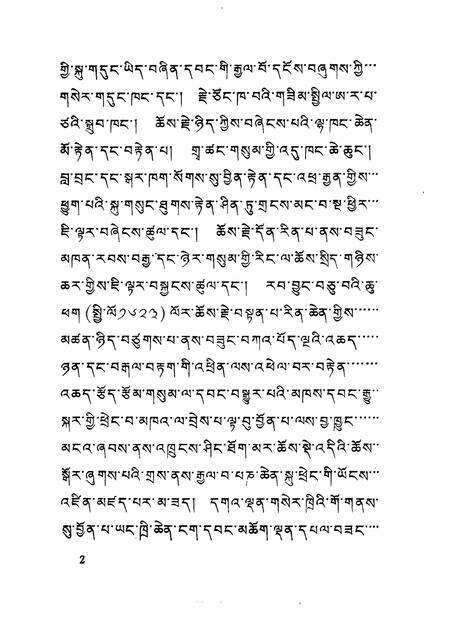 གྱི་སྐུ་གདུང་ཡིད་བཞིན་དབང་གི་རྒྱལ་པོ་དངོས་བཞུགས་ཀྱི་····
གསེར་གདུང་ཁང་དང་། རྗེ་ཙོང་ཁ་བའི་གཟིམ་སྤྱིལ་ཨ་ར་པ་
ཙའི་སྒྲུབ་ཁང་། ཆོས་རྗེ་ཉིད་ཀྱིས་བཞེངས་པའི་ལྷ་ཁང་ཆེན་
མོ་རྟེན་དང་བརྟེན་པ། གྲྭ་ཚང་གསུམ་གྱི་འདུ་ཁང་ཆེ་ཆུང་།
བླ་བྲང་དང་སྒར་ཁག་སོགས་སུ་བྱིན་རྟེན་དང་འཕྲ་རྒྱན་གྱིས་···
ཕྱུག་པའི་སྐུ་གསུང་ཐུགས་རྟེན་ཤིན་ཏུ་གྲངས་མང་བ་སྔ་ཕྱིར་···
ཇི་ལྟར་བཞེངས་ཚུལ་དང་། ཆོས་རྗེ་དོན་རིན་པ་ནས་བཟུང་
མཁན་རབས་བརྒྱ་དང་ཉེར་གསུམ་གྱི་རིང་ལ་ཆོས་སྲིད་གཉིས་
ཆར་གྱིས་ཇི་ལྟར་བསྐྱངས་ཚུལ་དང་། རབ་བྱུང་བཅུ་བའི་ཆུ་
ཕག (སྤྱི་ལོ༡༦༢༣) ལོར་ཆོས་རྗེ་བསྟན་པ་རིན་ཆེན་གྱིས་·····
མཚན་ཉིད་བཙུགས་པ་ནས་བཟུང་བཀའ་པོད་ལྔའི་འཆད་·····
ཉན་དང་བརྒལ་བརྟག་གི་འཕྲིན་ལས་འཕེལ་བར་བརྟེན་·······
འཆད་རྩོད་རྩོམ་གསུམ་ལ་དབང་བསྒྱུར་པའི་མཁས་དབང་རྒྱུ་··
སྐར་གྱི་ཕྲེང་བ་མཁའ་ལ་བྲེས་པ་ལྟ་བུ་བྱོན་པ་ལས་བྱ་ཁྱུང་······
མངའ་ཞབས་ནས་འཁྲུངས་ཤིང་ཐོག་མར་ཆོས་སྡེ་འདིའི་ཆོས་··
སྒོར་ཞུགས་པའི་གྲས་ནས་རྒྱལ་བ་པཎ་ཆེན་སྐུ་ཕྲེང་གི་ཡོངས་···
འཛིན་མཛད་པར་མ་ཟད། དགའ་ལྡན་གསེར་ཁྲིའི་གོ་གནས་
སུ་བྱོན་པ་ཡང་ཁྲི་ཆེན་ངག་དབང་མཆོག་ལྡན་དཔལ་བཟང་····
2